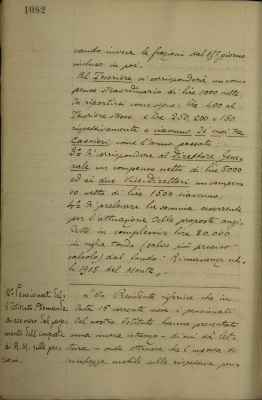 1082
cando invece le frazioni dal 15° giorno
incluso in poi.
Al Tesoriere si corrisponderà un com=
penso straordinario di lire 1000 nette
da ripartirsi come segue: lire 400 al
Tesoriere stesso e lire 250, 200 e 150
rispettivamente a ciascuno dei suoi tre
Cassieri, come l'anno passato;
3° di corrispondere al Direttore Gene=
rale un compenso netto di lire 5000
ed ai due Vice Direttori un compen=
so netto di lire 1500 ciascuno;
4° di prelevare la somma occorrente
per l'attuazione delle proposte anzi=
dette in complessive lire 80.000
in cifra tonda (salvo più preciso
calcolo) dal fondo "Rimanenza uti=
li 1915 del Monte".
Pensionati del
l'Istituto
di esonero dal paga
mento dell'imposta
di R.M. sulle pen
sioni.
Il Presidente riferisce che in
data 16 corrente mese i pensionati
del nostro Istituto hanno presentato
una nuova istanza - di cui dà let=
tura - onde ottenere che l'imposta di
ricchezza mobile sulle rispettive pen=